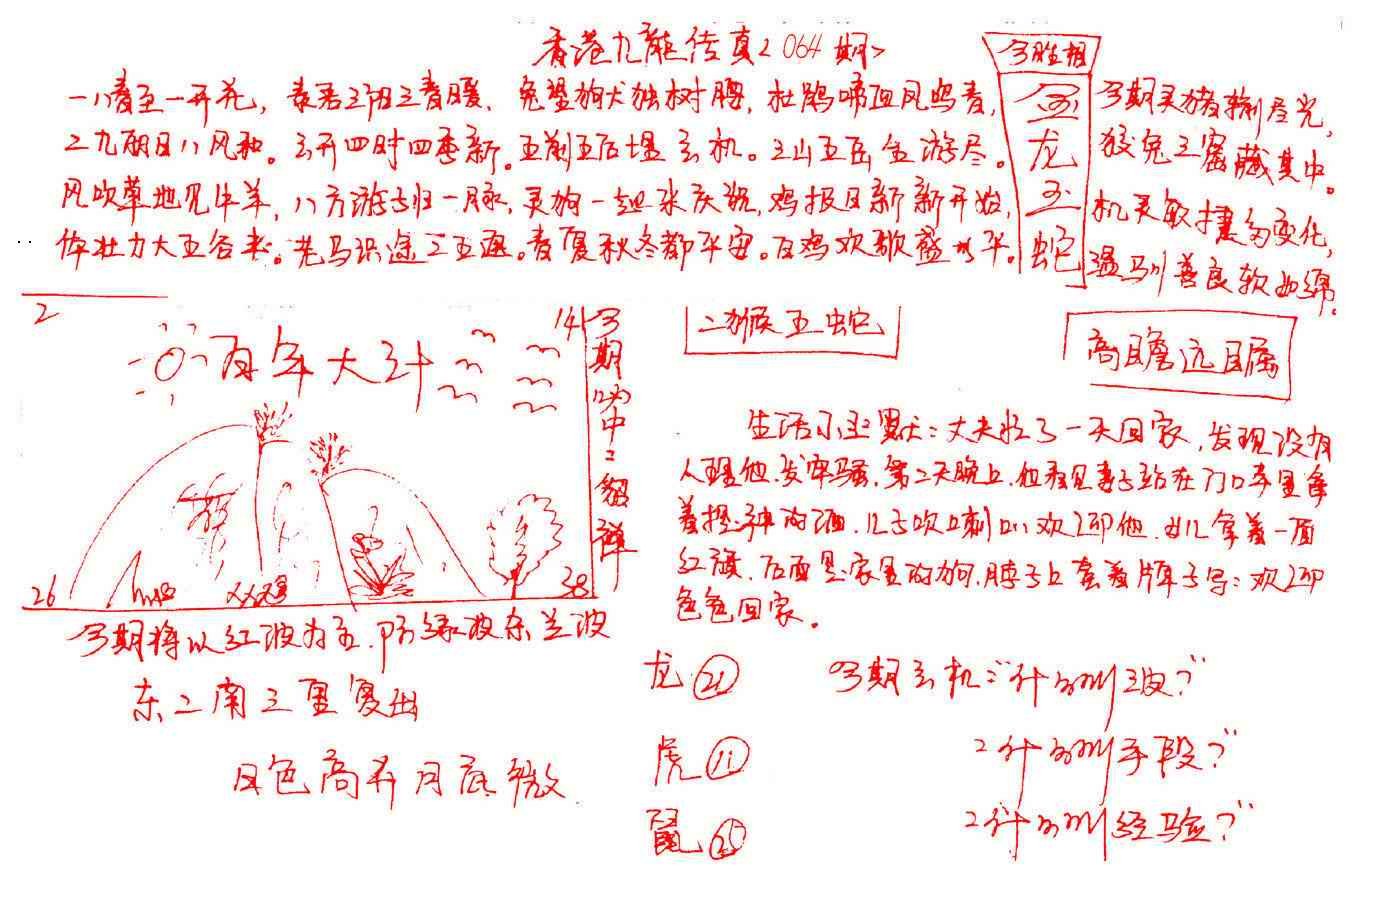 香港九龍传真<064期>
一八春至一开花，春君三阳三春暖．兔望狗犬独树膀，杜鹃啼血风鸣春，
二九朗日八风和。云开四时四季新。五前五后埋玄机。三山五岳全游尽。
风吹草地见牛羊，八方游子归一脉，灵狗一起来庆祝，鸡报日新新开始，
体壮力大五谷丰。老马识途三五通。春夏秋冬都平安。日鸡欢歌盛水平。
今胜相
金
龙
玉
蛇
今期灵猪输尽光，
狡兔三窟藏其中。
机灵敏捷多变化，
温驯善良软如绵。
2
14
百年大计
26
38
今期必中二组禅
二猴五蛇
高瞻远瞩
生活小幽默：丈夫忙了一天回家，发现没有
人理他．发牢骚，第二天晚上，他看见妻子站在门口手里拿
着提神的酒．儿子吹喇叭欢迎他．女儿拿着一面
红旗．后面是家里的狗．脖子上套着牌子写：欢迎
爸爸回家。
今期将以红波为主．防绿波杀兰波
东二南三里复出
日色高升月底微
龙 21
虎 11
鼠 25
今期玄机："什么叫  ？"
2什么叫手段？"
2什么叫经验？"